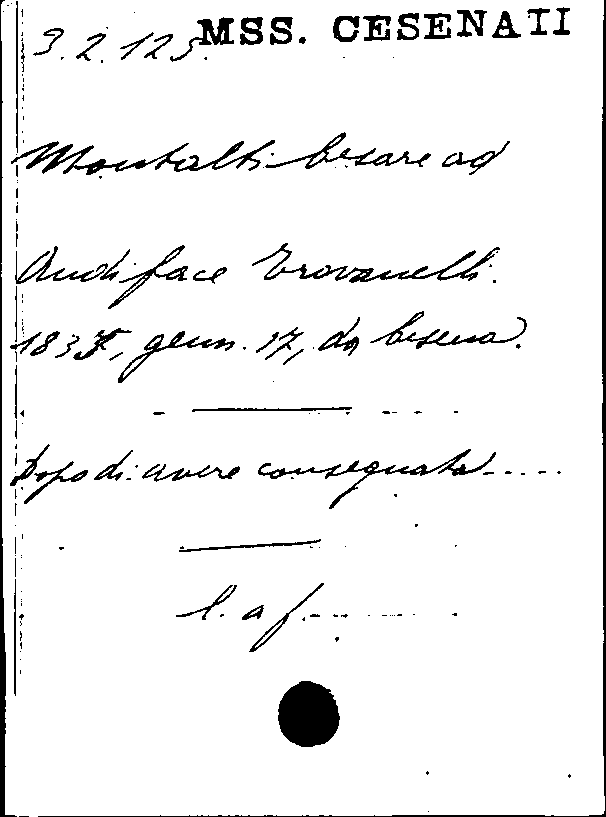 3.2.125.
MSS. CESENATI
Montalti Cesare ad
Audiface Trovanelli.
1837, genn. 17, da Cesena.
Dopo di avere consegnata.....
l. a f.